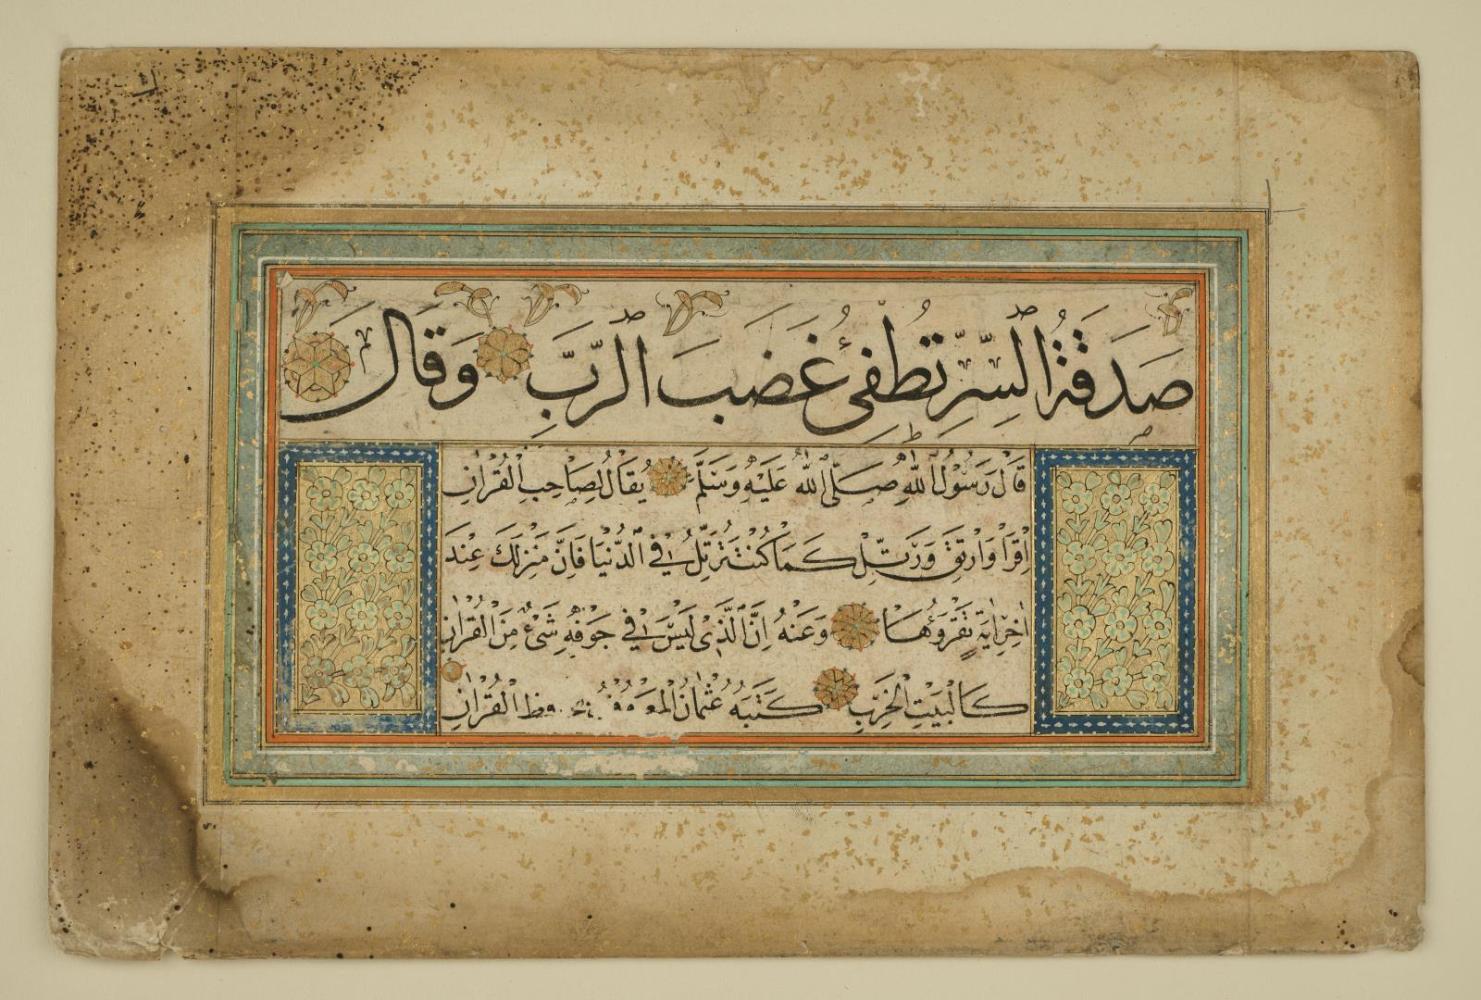 صَدَقَةُ السِّرِّ تُطْفِئُ غَضَبَ الرَّبِّ وَقَالَ
قَالَ رَسُوْلُ اللّٰهِ صَلَّى اللّٰهُ عَلَيْهِ وَسَلَّمَ يُقَالُ لِصَاحِبِ الْقُرْاٰنِ
اِقْرَأْ وَارْتَقِ وَرَتِّلْ كَمَا كُنْتَ تُرَتِّلُ فِي الدُّنْيَا فَاِنَّ مَنْزِلَكَ عِنْدَ
اٰخِرِ اٰيَةٍ تَقْرَؤُهَا وَعَنْهُ اِنَّ الَّذِىْ لَيْسَ فِيْ جَوْفِهِ شَىْءٌ مِنَ الْقُرْاٰنِ
كَالْبَيْتِ الْخَرِبِ كَتَبَهُ عُثْمَانُ الْمَعْرُوْفُ الْقُرْاٰنِ